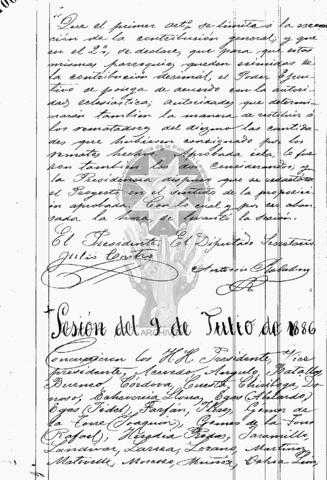 "Que el primer artº se limita á la exen-
ción de la contribución general; y que
en el 2º, se declare, que para que estas
mismas parroquias puedan eximirse de
la contribución decimal, el Poder Ejecu-
tivo se ponga de acuerdo con la autori-
dad eclesiástica; autoridades que determi-
narán tambien la manera de restituir á
los rematadores del diezmo las cantida-
des que hubiesen consignado por los
remates hechos. Aprobada ésta, lo fue-
ron tambien los considerandos; y
la Presidencia dispuso que se redactara
el Proyecto en el sentido de la proposici-
ón aprobada. Con lo cual y por ser avan-
zada la hora, se levantó la sesión.
El Presidente, El Diputado Secretario
Julio Castro
Antonio
Sesión del 9 de Julio de 1886
Concurrieron los H.H. Presidente, Vice
presidente, Acevedo, Angulo, Batallas
Bueno, Córdova, Cuesta, Chiriboga, Do-
noso, Echeverría Llona, Egas (Abelardo),
Egas (Fidel), Farfán, Flores, Gómez de
la Torre (Joaquín), Gómez de la Torre
(Rafael), Heredia, Jaramillo,
Landívar, Larrea, Lozano, Martínez,
Matovelle, Moscoso, Muñoz,